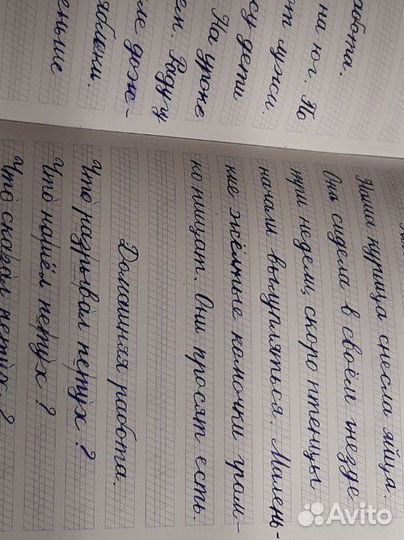 абота.
на юг. По
т лужи.
су дети
На уроке
ем. Вдруг
дож-
Наша курица снесла яйца.
Она сидела в своём гнезде
три недели, скоро птенцы
начали вылупляться. Малень-
кие жёлтые комочки гром-
ко пищат. Они просят есть.
Домашняя работа.
Что разрывал петух?
Что нашёл петух?
Что сказал петух?
Avito